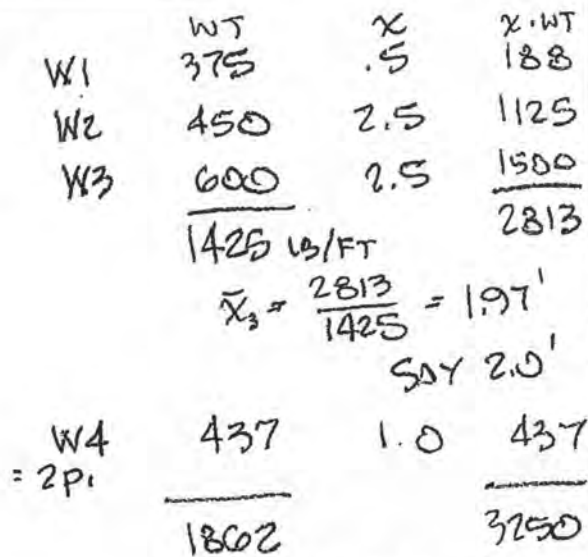 WT x x·WT
W1 375 .5 188
W2 450 2.5 1125
W3 600 2.5 1500
1425 LB/FT 2813
x̄₃ = 2813/1425 = 1.97'
SAY 2.0'
W4 437 1.0 437
= 2P₁
1862 3250